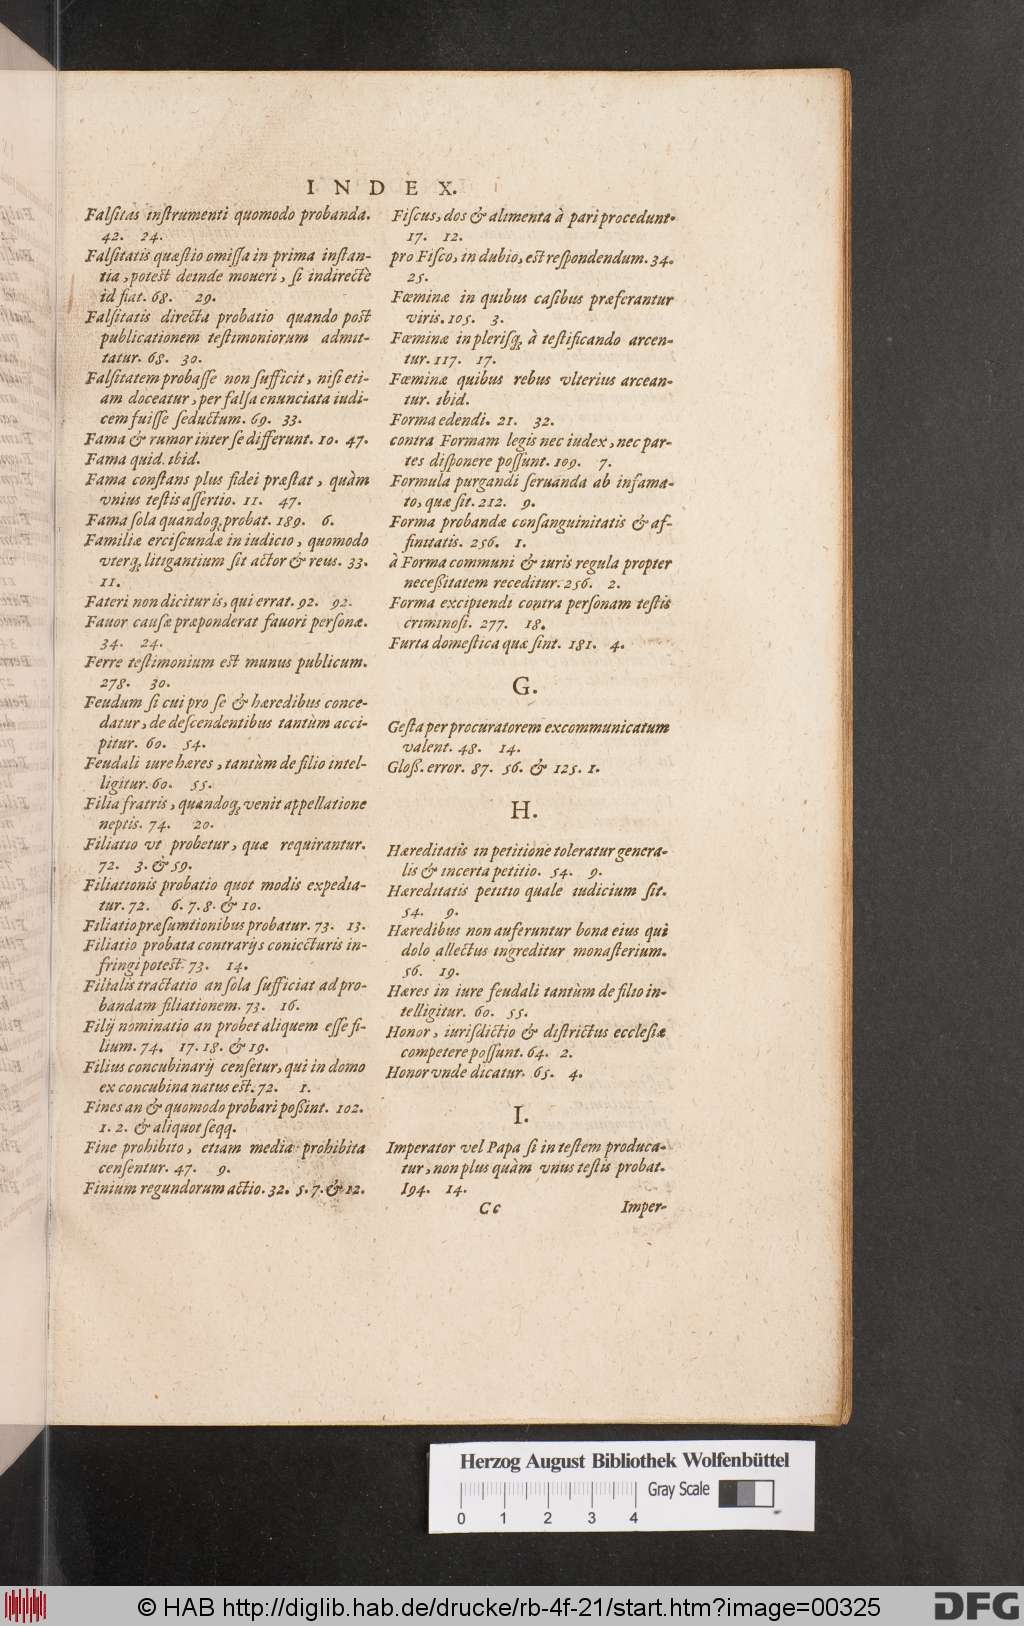 INDEX.
Falſitas inſtrumenti quomodo probanda.
42. 24.
Falſitatis quæſtio omiſſa in prima inſtan-
tia, poteſt deinde moueri, ſi indirectè
id fiat. 68. 29.
Falſitatis directa probatio quando poſt
publicationem teſtimoniorum admit-
tatur. 68. 30.
Falſitatem probaſſe non ſufficit, niſi eti-
am doceatur, per falſa enunciata iudi-
cem fuiſſe ſeductum. 69. 33.
Fama & rumor inter ſe differunt. 10. 47.
Fama quid. ibid.
Fama conſtans plus fidei præſtat, quàm
vnius teſtis aſſertio. 11. 47.
Fama ſola quandoq; probat. 189. 6.
Familiæ erciſcundæ in iudicio, quomodo
vterq; litigantium ſit actor & reus. 33.
11.
Fateri non dicitur is, qui errat. 92. 92.
Fauor cauſæ præponderat fauori perſonæ.
34. 24.
Ferre teſtimonium eſt munus publicum.
278. 30.
Feudum ſi cui pro ſe & hæredibus conce-
datur, de deſcendentibus tantùm acci-
pitur. 60. 54.
Feudali iure hæres, tantùm de filio intel-
ligitur. 60. 55.
Filia fratris, quandoq; venit appellatione
neptis. 74. 20.
Filiatio vt probetur, quæ requirantur.
72. 3. & 59.
Filiationis probatio quot modis expedia-
tur. 72. 6. 7. 8. & 10.
Filiatio præſumtionibus probatur. 73. 13.
Filiatio probata contrarijs coniecturis in-
fringi poteſt. 73. 14.
Filialis tractatio an ſola ſufficiat ad pro-
bandam filiationem. 73. 16.
Filij nominatio an probet aliquem eſſe fi-
lium. 74. 17. 18. & 19.
Filius concubinarij cenſetur, qui in domo
ex concubina natus eſt. 72. 1.
Fines an & quomodo probari poßint. 102.
1. 2. & aliquot ſeqq.
Fine prohibito, etiam media prohibita
cenſentur. 47. 9.
Finium regundorum actio. 32. 5. 7. & 12.
Fiſcus, dos & alimenta à pari procedunt.
17. 12.
pro Fiſco, in dubio, eſt reſpondendum. 34.
25.
Fœminæ in quibus caſibus præferantur
viris. 105. 3.
Fœminæ in pleriſq; à teſtificando arcen-
tur. 117. 17.
Fœminæ quibus rebus vlterius arcean-
tur. ibid.
Forma edendi. 21. 32.
contra Formam legis nec iudex, nec par-
tes diſponere poſſunt. 109. 7.
Formula purgandi ſeruanda ab infama-
to, quæ ſit. 212. 9.
Forma probandæ conſanguinitatis & af-
finitatis. 256. 1.
à Forma communi & iuris regula propter
neceßitatem receditur. 256. 2.
Forma excipiendi contra perſonam teſtis
criminoſi. 277. 18.
Furta domeſtica quæ ſint. 181. 4.
G.
Geſta per procuratorem excommunicatum
valent. 48. 14.
Gloß. error. 87. 56. & 125. 1.
H.
Hæreditatis in petitione toleratur genera-
lis & incerta petitio. 54. 9.
Hæreditatis petitio quale iudicium ſit.
54. 9.
Hæredibus non auferuntur bona eius qui
dolo allectus ingreditur monaſterium.
56. 19.
Hæres in iure feudali tantùm de filio in-
telligitur. 60. 55.
Honor, iurisdictio & diſtrictus eccleſiæ
competere poſſunt. 64. 2.
Honor vnde dicatur. 65. 4.
I.
Imperator vel Papa ſi in teſtem produca-
tur, non plus quàm vnius teſtis probat.
194. 14.
Cc Imper-
Herzog August Bibliothek Wolfenbüttel
Gray Scale
0 1 2 3 4
© HAB http://diglib.hab.de/drucke/rb-4f-21/start.htm?image=00325
DFG